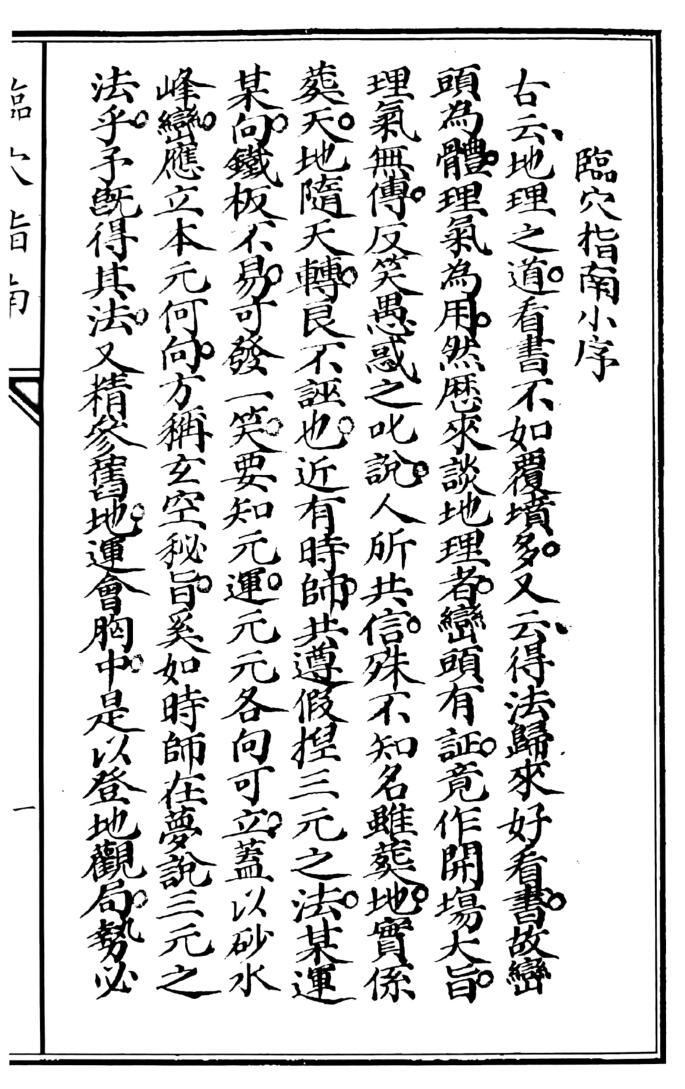 臨穴指南小序
古云、地理之道。看書不如覆墳多。又云、得法歸來好看書。故巒
頭為體。理氣為用。然歷來談地理者。巒頭有証。竟作開場大旨。
理氣無傳。反笑愚惑之叱說。人所共信。殊不知名雖葬地。實係
葬天。地隨天轉。良不誣也。近有時師。共遵假揑三元之法。某運
某向。鐵板不易。可發一笑。要知元運。元元各向可立。蓋以砂水
峰巒。應立本元何向。方稱玄空秘旨。奚如時師在夢說三元之
法乎。予既得其法。又精參舊地。運會胸中。是以登地觀局。勢必
臨穴指南
一